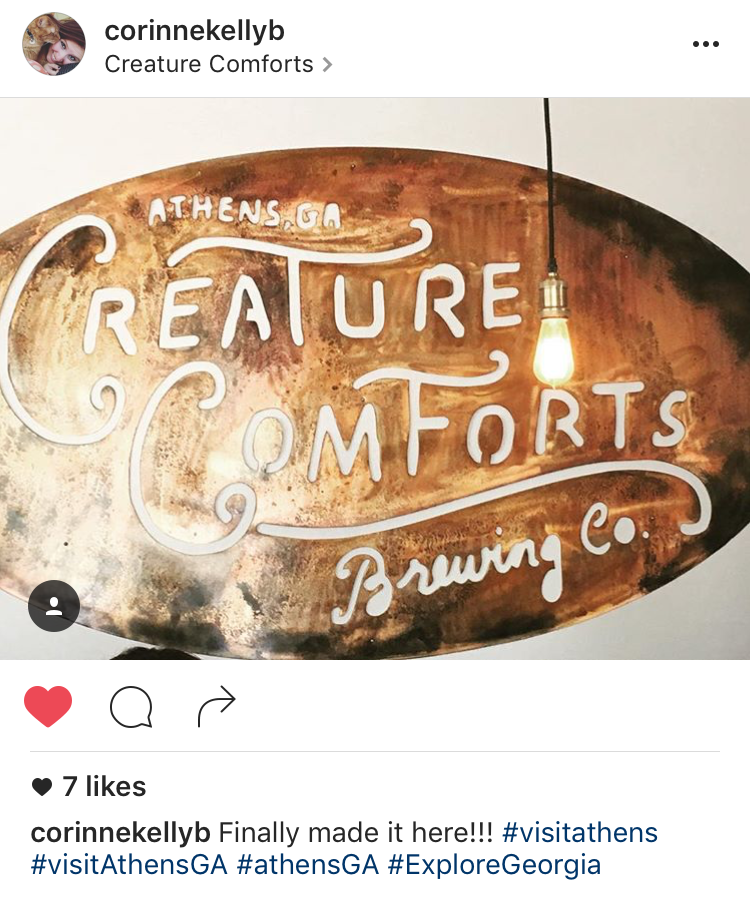 corinnekellyb
Creature Comforts >
ATHENS, GA
CREATURE
COMFORTS
Brewing Co.
7 likes
corinnekellyb Finally made it here!!! #visitathens
#visitAthensGA #athensGA #ExploreGeorgia